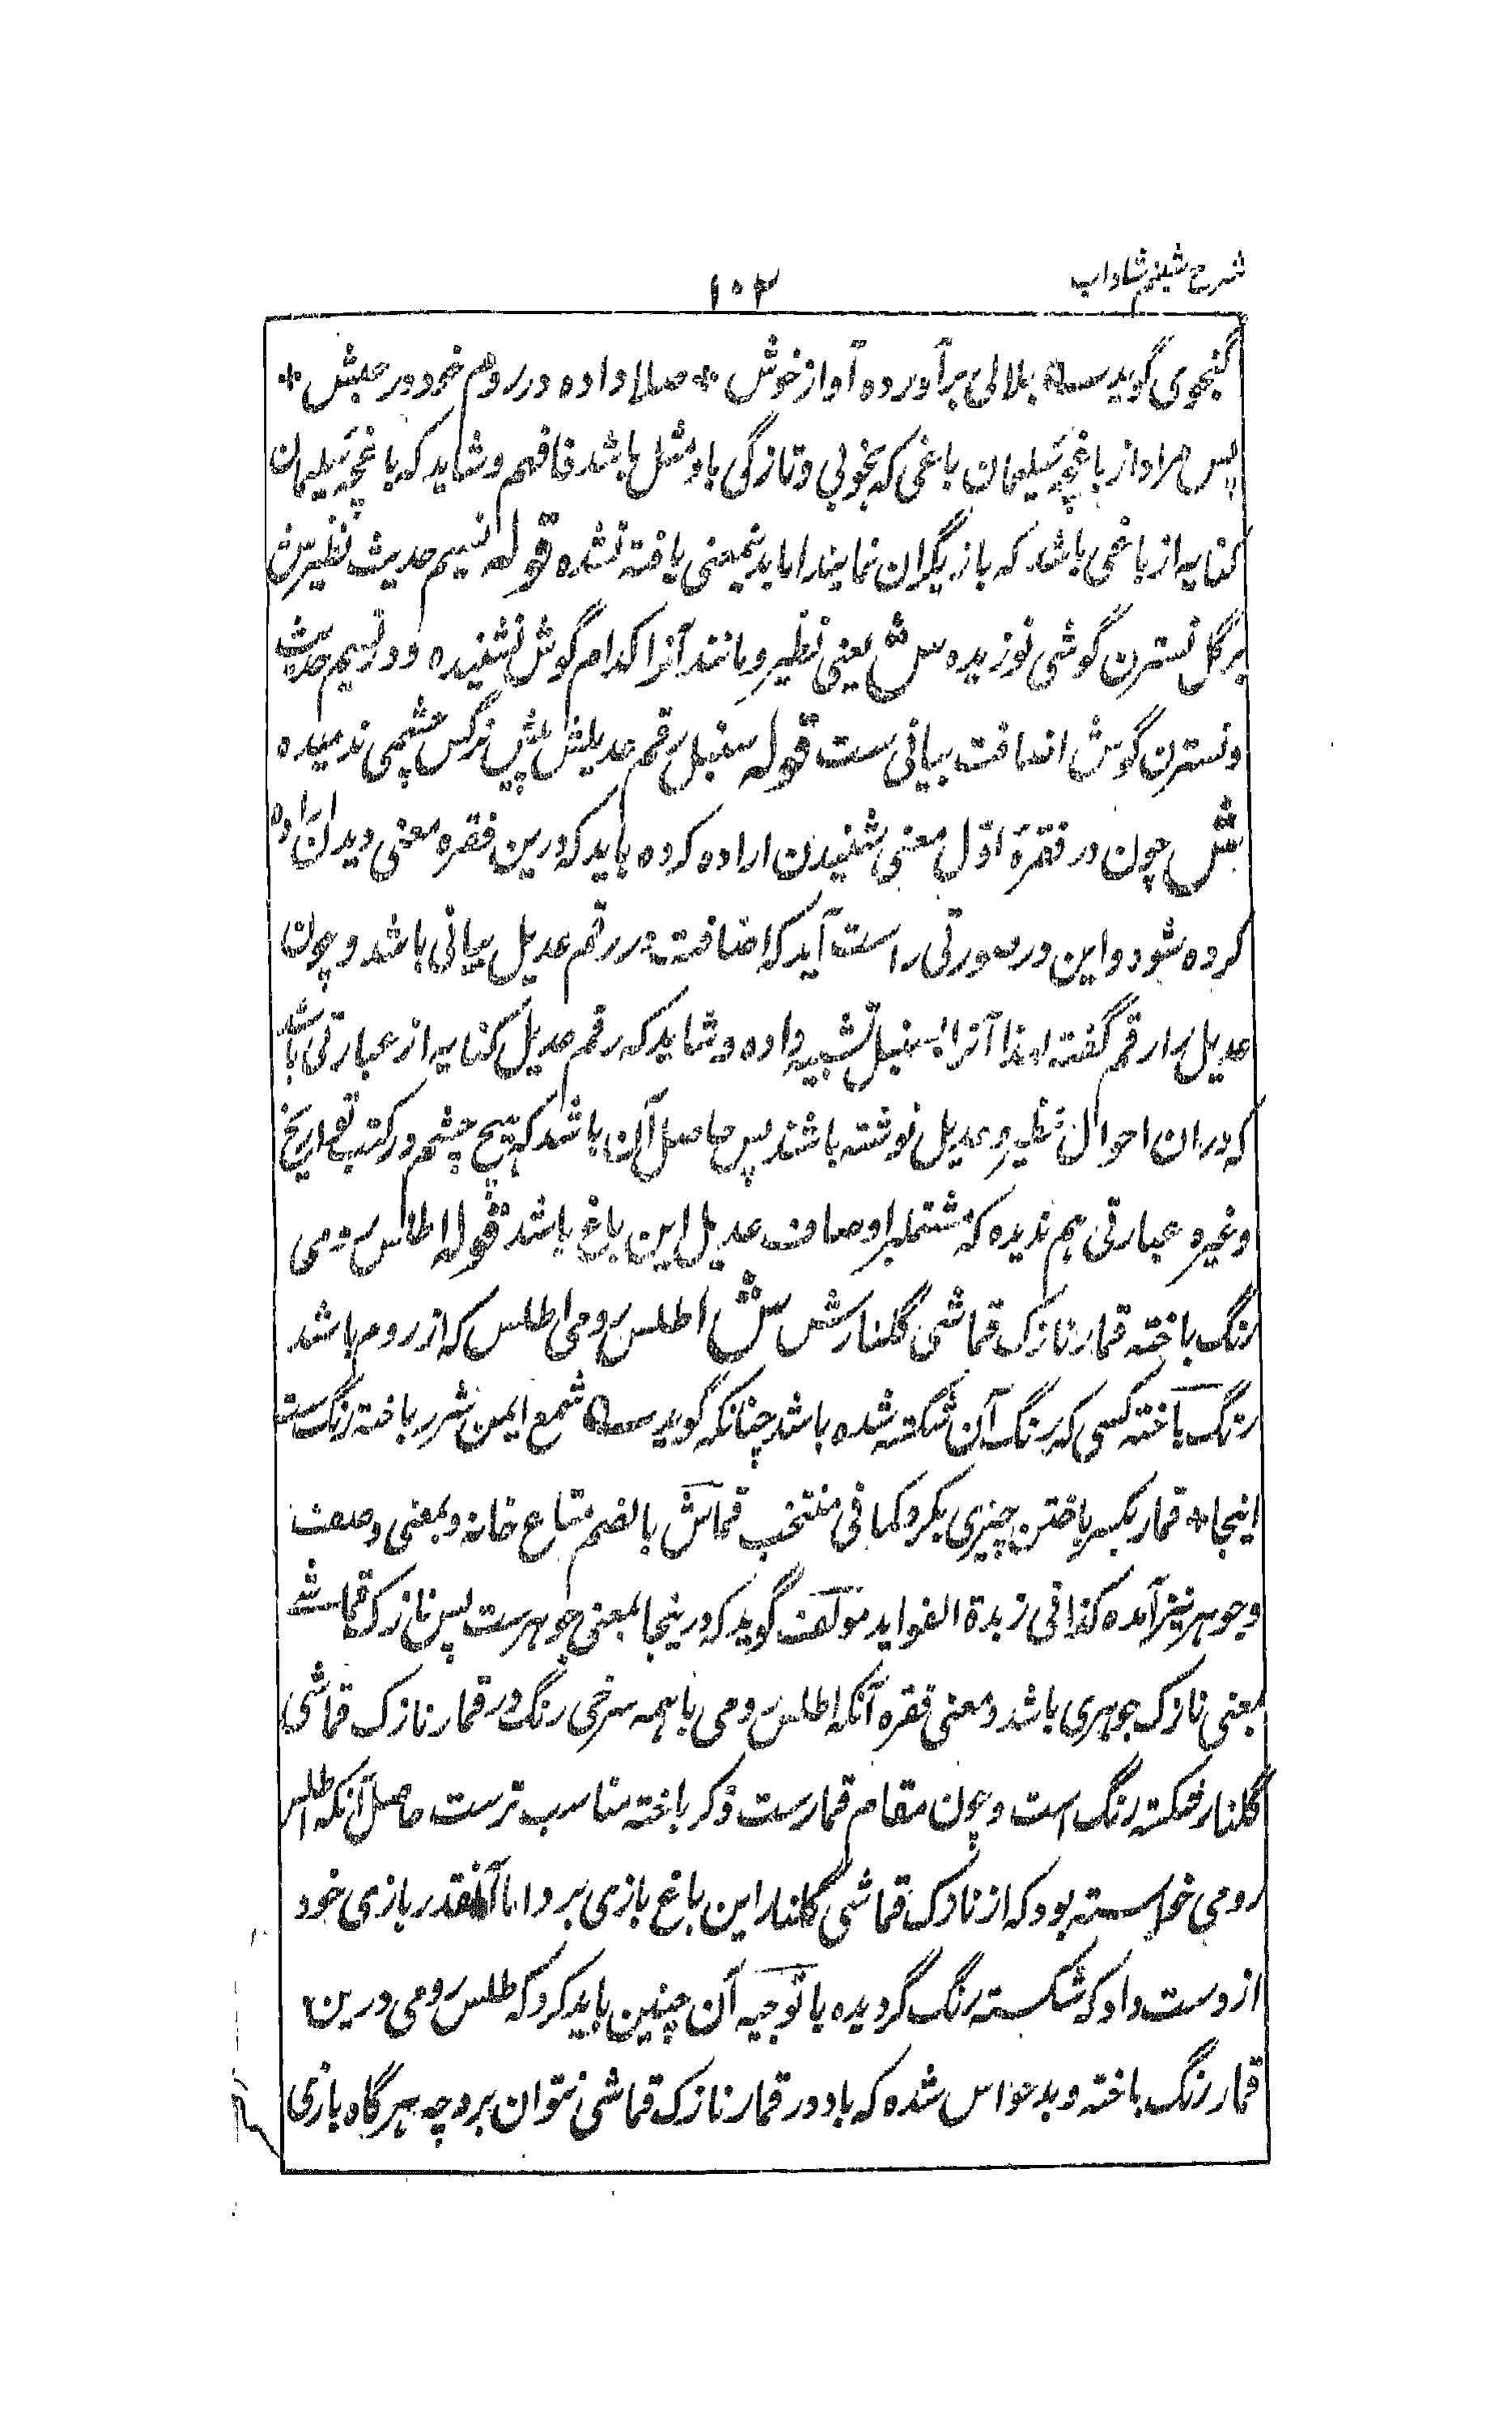 شرح شبنم شاداب
۱۰۲
گنجوی گوید ؎ بلالی برآورده آواز خوش * صلا داده در روم خود در حبش *
پس مراد از باغچۀ سلیمان باغی که بخوبی و تازگی باو مثل باشد فافهم و شاید که باغچۀ سلیمان
کنایه از باغی باشد که بازیگران نمایند اما بدینمعنی یافته نشده قوله نسیم حدیث نظیرش
بر گل نسترن گوشی نوزیده ش یعنی نظیر و مانند آنرا کدام گوش نشنیده و در نسیم حدیث
و نسترن گوش اضافت بیانی ست قوله سنبل رقم عدیلش پیش نرگس چشمی ندمیده
ش چون در فقرۀ اوّل معنی شنیدن اراده کرده باید که درین فقره معنی دیدن اراده
کرده شود و این در صورتی راست آید که اضافت در رقم عدیل بیانی باشد و چون
عدیل را رقم گفته لهذا آنرا بسنبل تشبیه داده و شاید که رقم عدیل کنایه از عبارتی باشد
که دران احوال نظیر و عدیل نوشته باشند پس حاصل آن باشد که هیچ چشم در کتب تواریخ
وغیره عبارتی هم ندیده که مشتملبر اوصاف عدیل این باغ باشد قوله اطلس رومی
رنگ باخته قمار نازک قماشی گلنارش ش اطلس رومی اطلس که از روم باشد
رنگ باخته کسی که رنگ آن شکسته شده باشد چنانکه گوید ؎ شمع ایمن شرر باخته رنگ ست
اینجا * قمار بکسر باختن چیزی بگرو کما فی منتخب قماش بالضم متاع خانه و بمعنی وصف
و جوهر نیز آمده کذا فی زبدة الفواید مؤلف گوید که درینجا بمعنی جوهرست پس نازک قماشی
بمعنی نازک جوهری باشد و معنی فقره آنکه اطلس رومی با همه سرخی رنگ در قمار نازک قماشی
گلنار شکسته رنگ است و چون مقام قمارست ذکر باخته مناسب ترست حاصل آنکه اطلس
رومی خواسته بود که از نازک قماشی گلنار این باغ بازی برد اما آنقدر بازی خود
از دست داد که شکسته رنگ گردیده یا توجیه آن چنین باید کرد که طلس رومی درین
قمار رنگ باخته و بدحواس شده که باو در قمار نازک قماشی نتوان برد چه هرگاه بازی